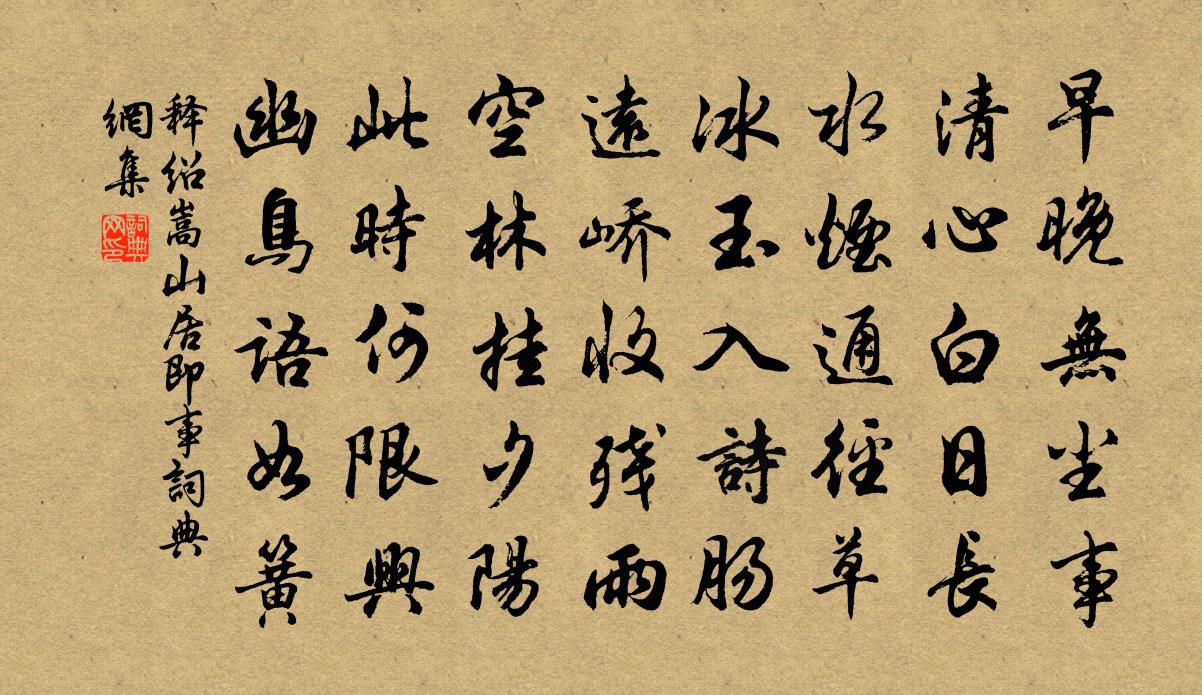 早晚無尘事
清心白日長
水煙通徑草
冰玉入詩腸
遠嶠收残雨
空林挂夕陽
此時何限興
幽鳥語如簧
释绍嵩山居即事詞典
網集
詞典
网印